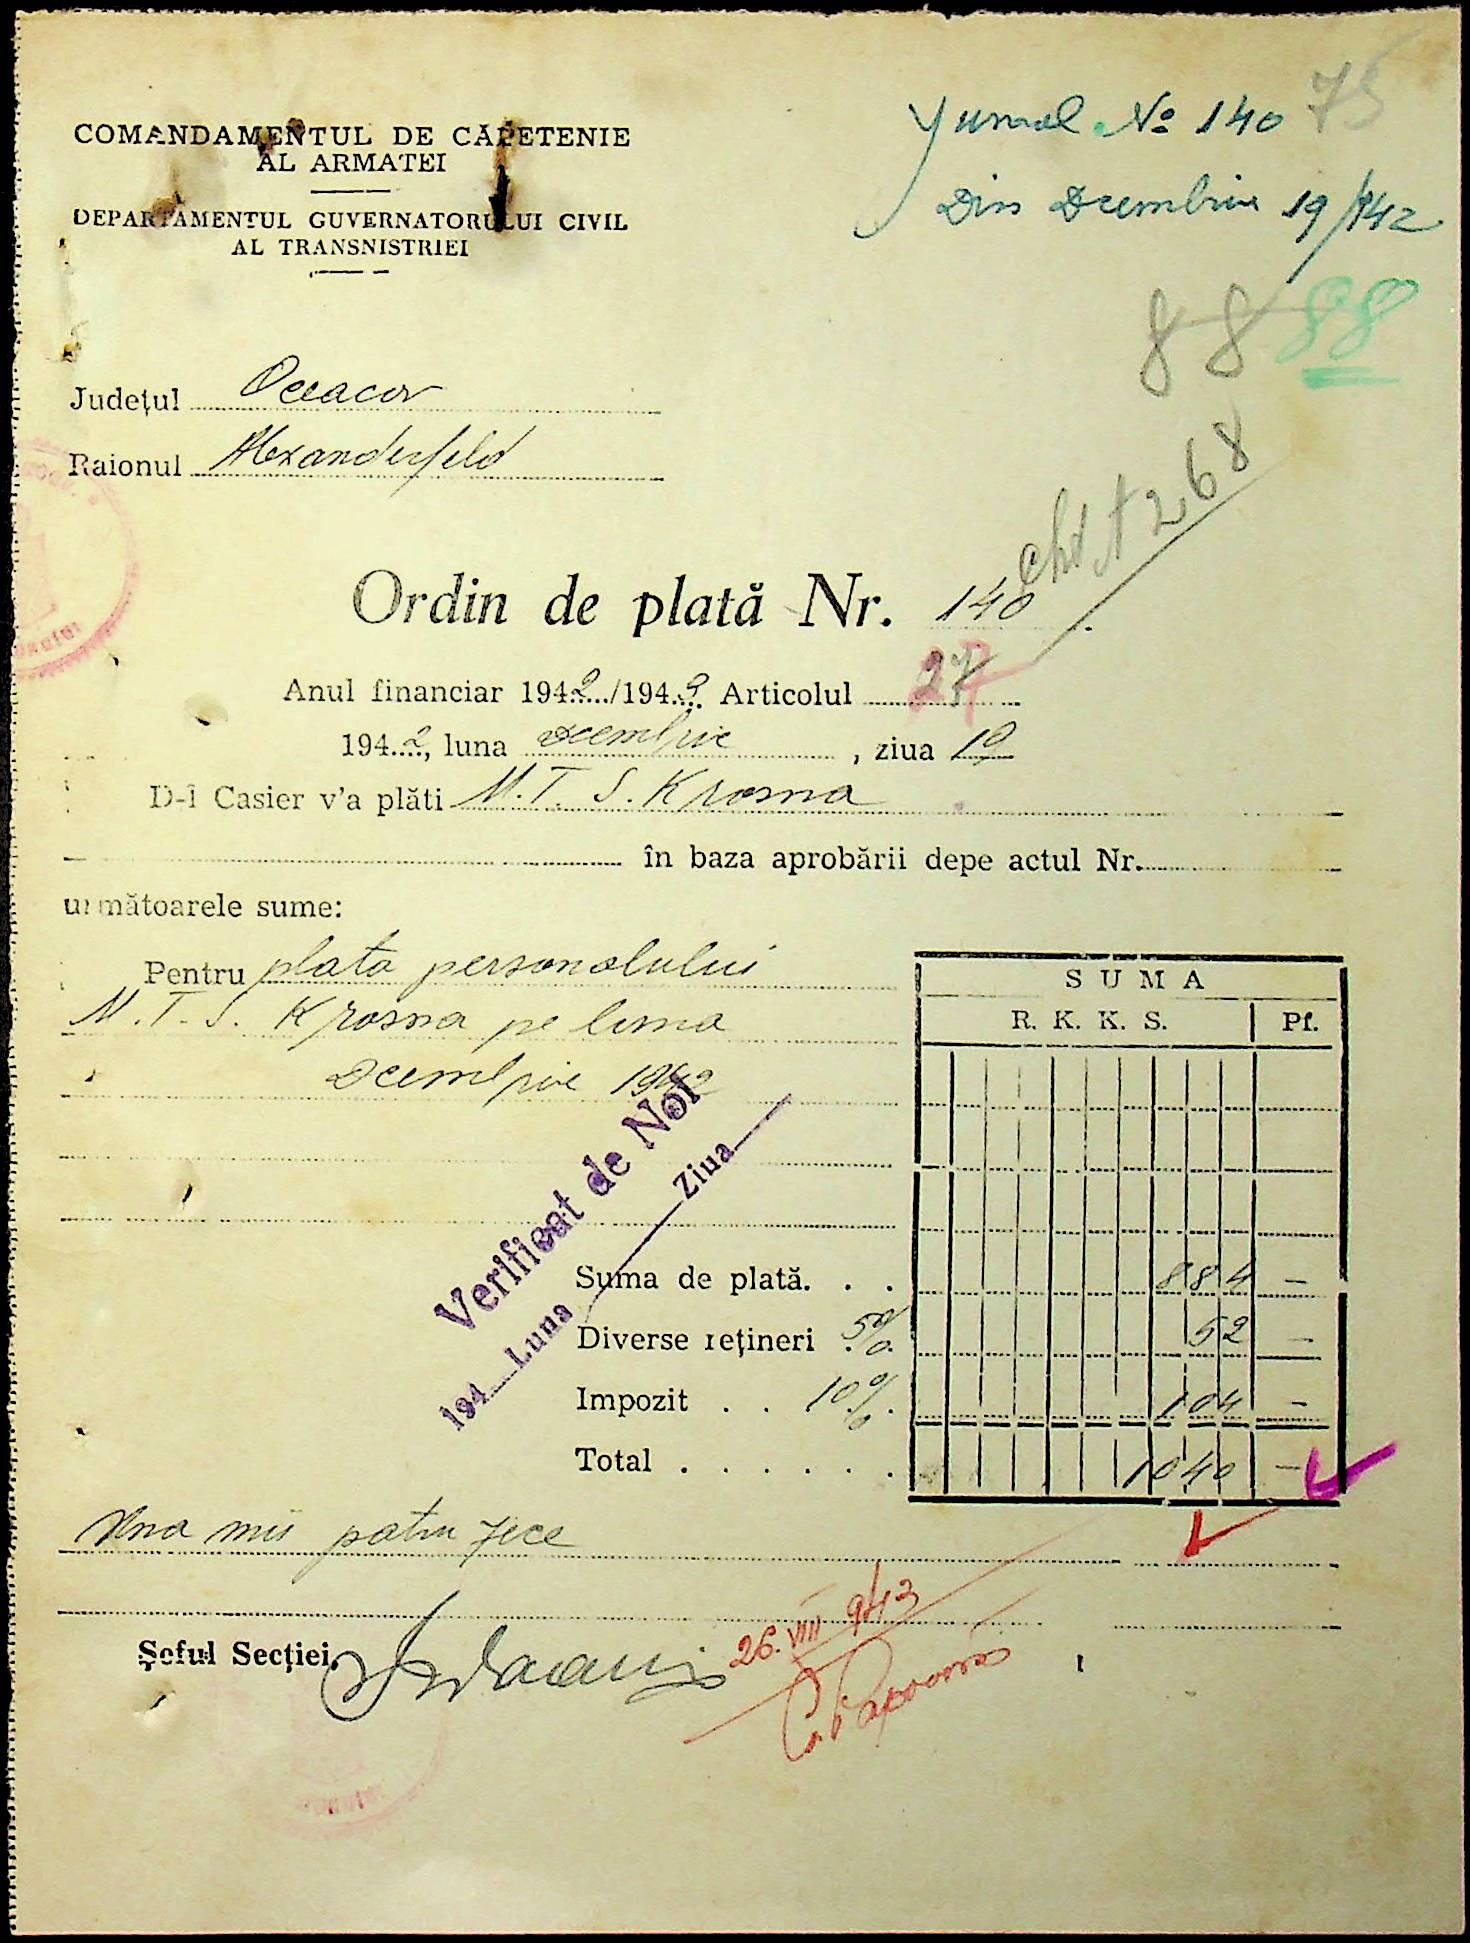 COMANDAMENTUL DE CĂPETENIE
AL ARMATEI
DEPARTAMENTUL GUVERNATORULUI CIVIL
AL TRANSNISTRIEI
Jurnal No 140
75
Din Decembrie 19/942
88 88
Județul Oceacov
Raionul Alexanderfeld
cht 1268
Ordin de plată Nr. 140
Anul financiar 1942/1943 Articolul 27
1942, luna Decembrie, ziua 19
D-l Casier v'a plăti M. T. S. Krosna
în baza aprobării depe actul Nr.
următoarele sume:
Pentru plata personalului
M. T. S. Krosna pe luna
Decembrie 1942
SUMA
R. K. K. S. Pf.
Verificat de Noi
194 Luna Ziua
Suma de plată. . . 884 —
Diverse rețineri 5% 52 —
Impozit . . 10% 104 —
Total . . . . . . 1040 —
Una mii patru zece
Șeful Secției
26.VIII 943